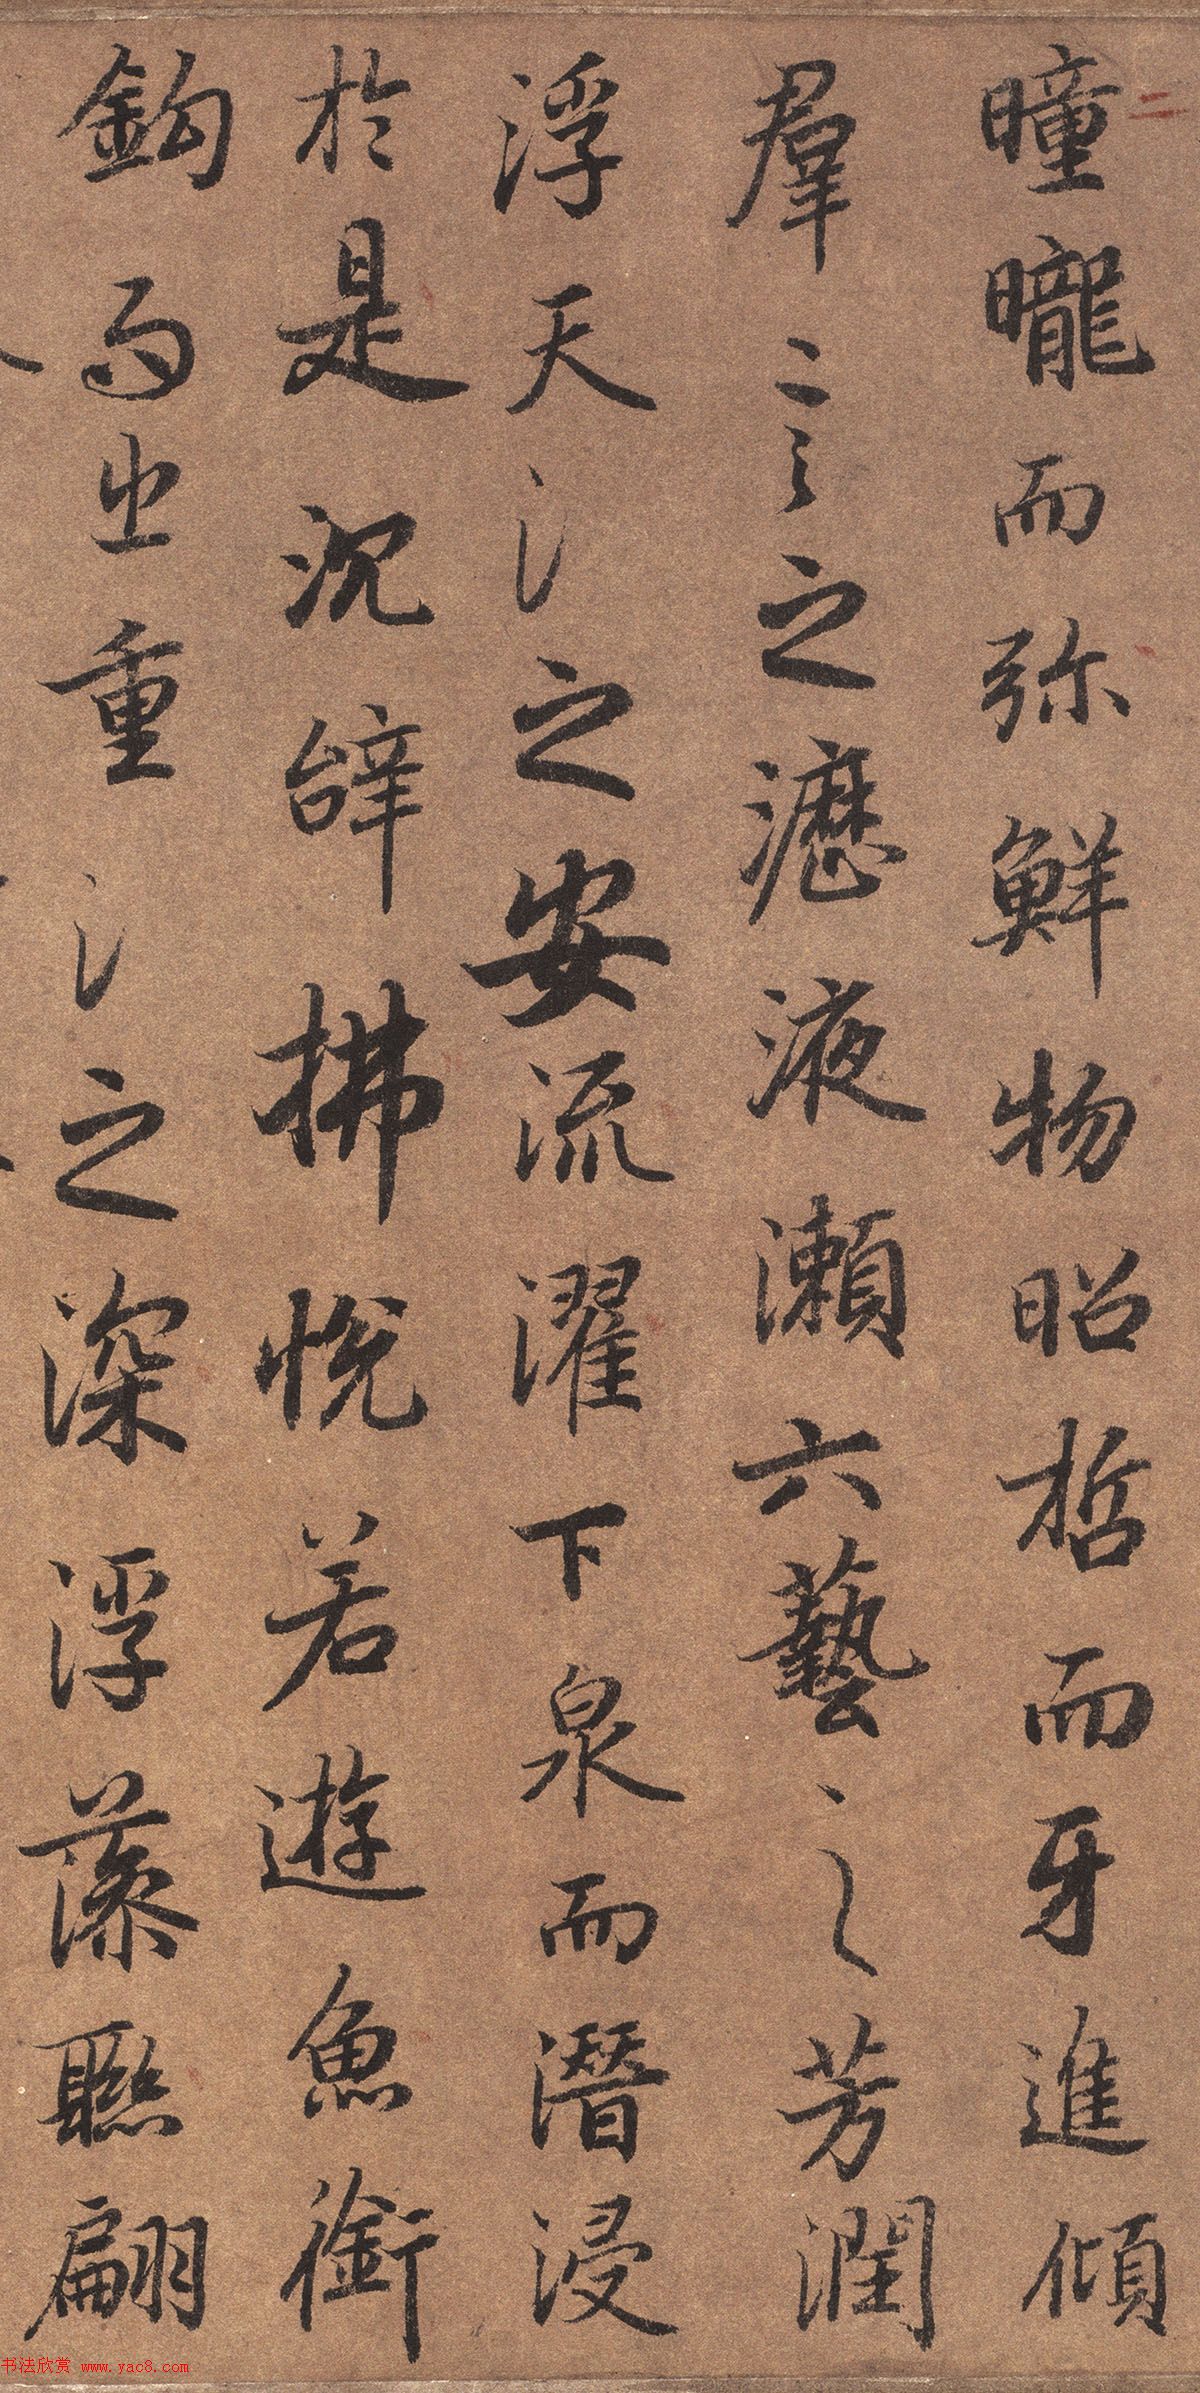 二
曈曨而弥鮮物昭晢而牙進傾
羣言之瀝液瀬六藝之芳潤
浮天氵之安流濯下泉而潛浸
於是沉辭拂悅若遊魚銜
鈎而出重氵之深浮藻聯翩
书法欣赏 www.yac8.com